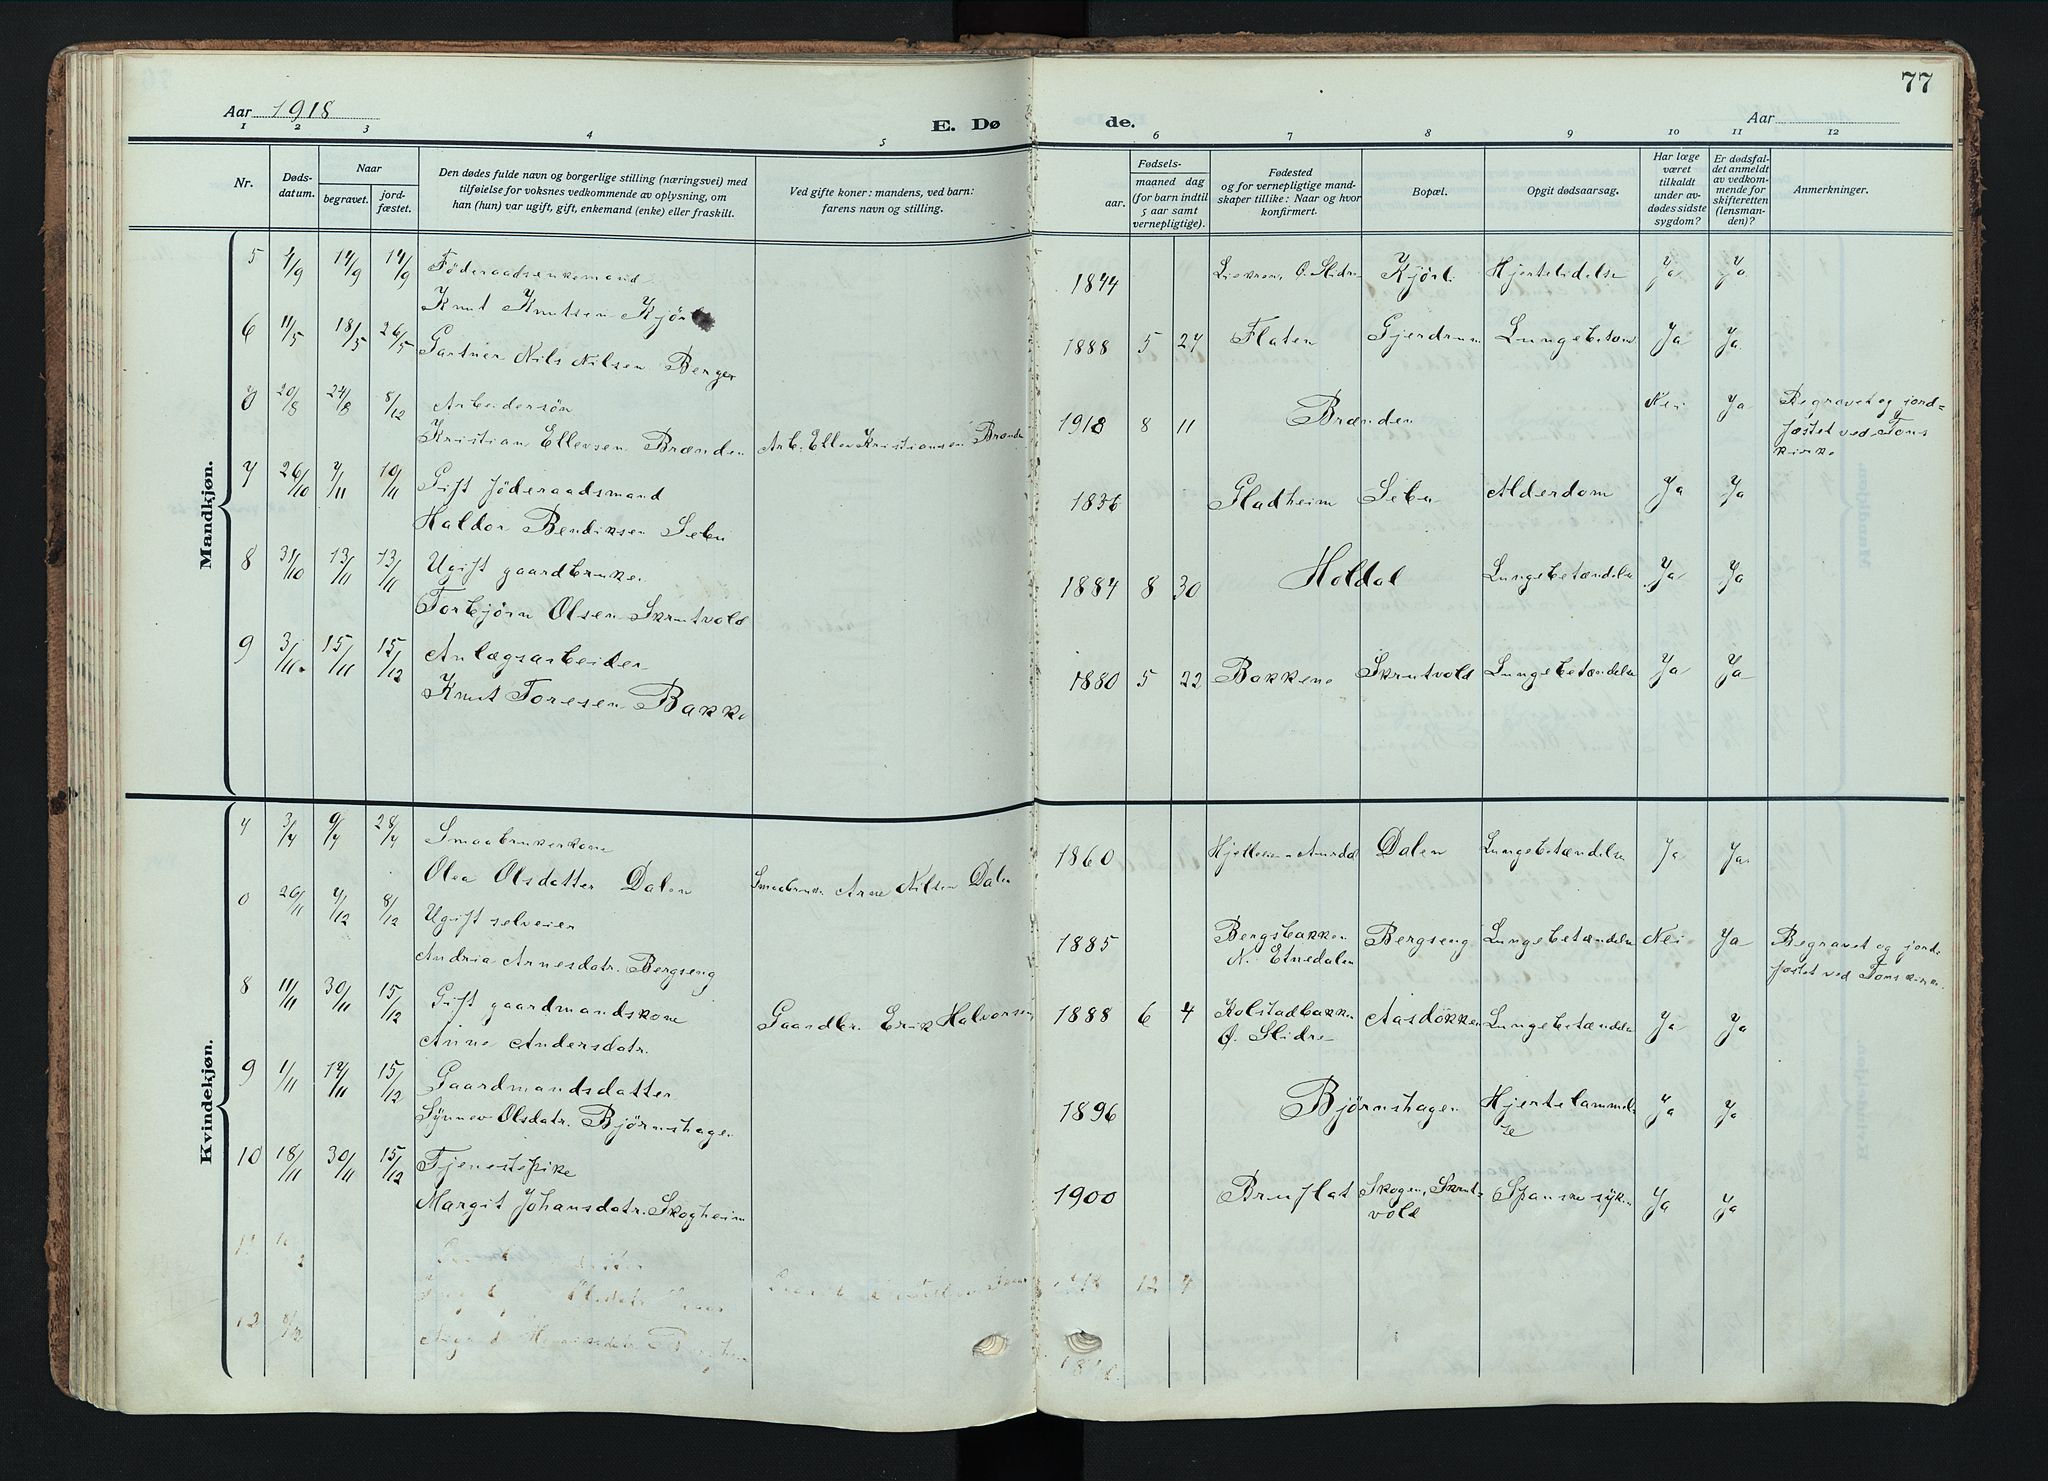 77
Aar 1918
E. Dø
de.
Aar
1 2 3 4 5 6 7 8 9 10 11 12
Nr.
Døds-
datum.
Naar
begravet.
jord-
fæstet.
Den dødes fulde navn og borgerlige stilling (næringsvei) med
tilføielse for voksnes vedkommende av oplysning, om
han (hun) var ugift, gift, enkemand (enke) eller fraskilt.
Ved gifte koner: mandens, ved barn:
farens navn og stilling.
Fødsels-
aar.
maaned dag
(for barn indtil
5 aar samt
vernepligtige).
Fødested
og for vernepligtige mand-
skaper tillike: Naar og hvor
konfirmert.
Bopæl.
Opgit dødsaarsag.
Har læge
været
tilkaldt
under av-
dødes sidste
sygdom?
Er dødsfal-
det anmeldt
av vedkom-
mende for
skifteretten
(lensman-
den)?
Anmerkninger.
Mandkjøn.
5 4/9 14/9 14/9 Föderaadsenkemand 1844 Ö. Slidre Kjörl Hjertelidelse Ja Ja
Knut Knutsen
6 11/5 18/5 26/5 Gartner Nils Nilsen Berger 1888 5 24 Flaten Gjerdrum Ja Ja
20/8 24/8 8/12 Arbeidersön Nei Ja Begravet og jord=
Kristian Ellevsen Brænden Arb. Ellev Kristiansen 1918 8 11 Brænden fæstet ved Tons
kirke
7 26/10 7/11 10/11 Gift föderaadsmand 1836 Gladheim Sebu Alderdom Ja Ja
Haldor Bendiksen Sebu
8 31/10 13/11 13/11 Ugift gaardbruker 1884 8 30 Holdal Lungebetændelse Ja Ja
Torbjörn Olsen Skrutvold
9 3/11 15/11 15/12 Anlægsarbeider 1880 5 22 Bakkene Skrutvold Lungebetændelse Ja Ja
Knut Toresen Bakke
Kvindekjøn.
3/4 9/4 28/4 Smaabrukerkone 1860 Dalen Lungebetændelse Ja Ja
Olea Olsdatter Dalen Arne Nilsen Dalen
8/12 Ugift selveier 1885 Bergsbakken Bergseng Lungebetændelse Nei Ja Begravet og jord-
Andria Arnesdatr. Bergseng N. Etnedalen fæstet ved Tons kirke.
8 11/11 30/11 15/12 Gift gaardmandskone Gaardbr. Erik Halvorsen 1888 6 4 Kolstadbakken Aasdökken Lungebetændelse Ja Ja
Anne Andersdatr. Ö. Slidre
9 1/11 14/11 15/12 Gaardmandsdatter 1896 Björnshagen Hjertelammel-
Synnev Olsdatr. Björnshagen se Ja Ja
10 18/11 30/11 15/12 Tjenestepike 1900 Bruflat Skogen, Skrut- Spanske syken Ja Ja
Margit Johansdatr. Skogheim vold
11 12 4
12